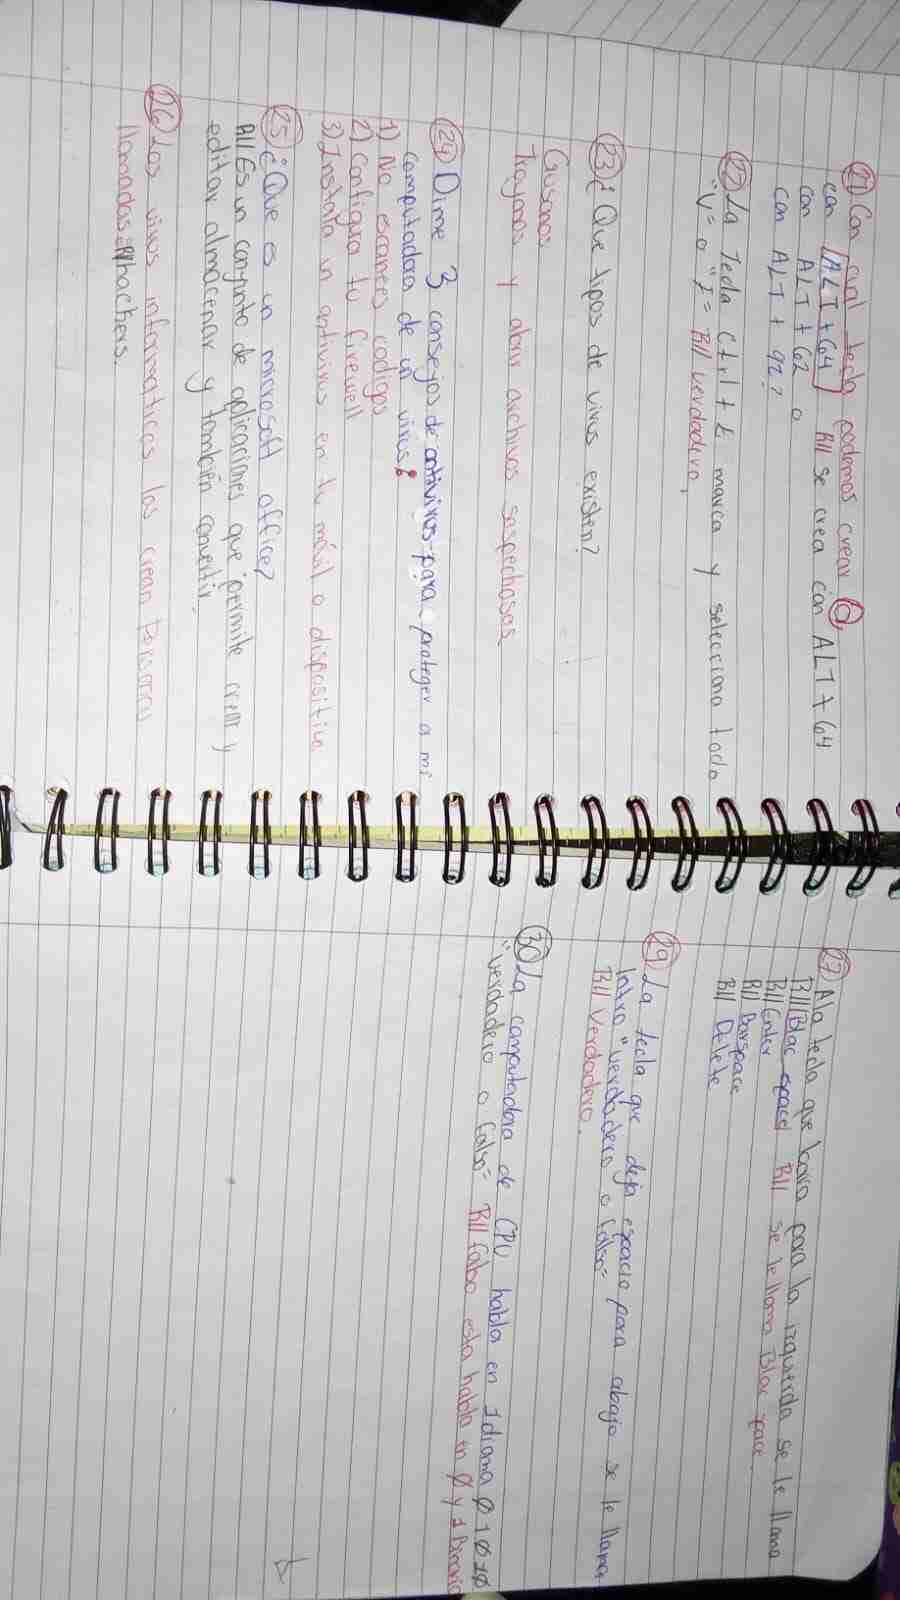 21) Con cual tecla podemos crear @
con ALT + 64 R// se crea con ALT + 64
con ALT + 62 o
con ALT + 92?
22) La Tecla Ctrl + E marca y selecciona todo
"V= o "F= R// verdadero,
23) ¿Que tipos de virus existen?
Gusanos
Troyanos y abrir archivos sospechosos
24) Dime 3 consejos de antivirus para proteger a mi
computadora de un virus?
1) No escanees codigos
2) Configura tu firewell
3) Instala un antivirus en tu móvil o dispositivo
25) ¿Que es un microsoft office?
R// Es un conjunto de aplicaciones que permite crear y
editar almacenar y también convertir.
26) Los virus informaticos los crean Personas
llamadas= R// hackers.
27) A la tecla que borra para la izquierda se le llama
R// Blac space R// se le llama Blac space.
R// Enter
R// Barspace
R// Delete
29) La tecla que deja espacio para abajo se le llama
Intro "verdadero o falso=
R// Verdadero.
30) La computadora de CPU habla en Idioma 0 1 0 10
"verdadero o falso= R// falso esta habla en 0 y 1 Binario